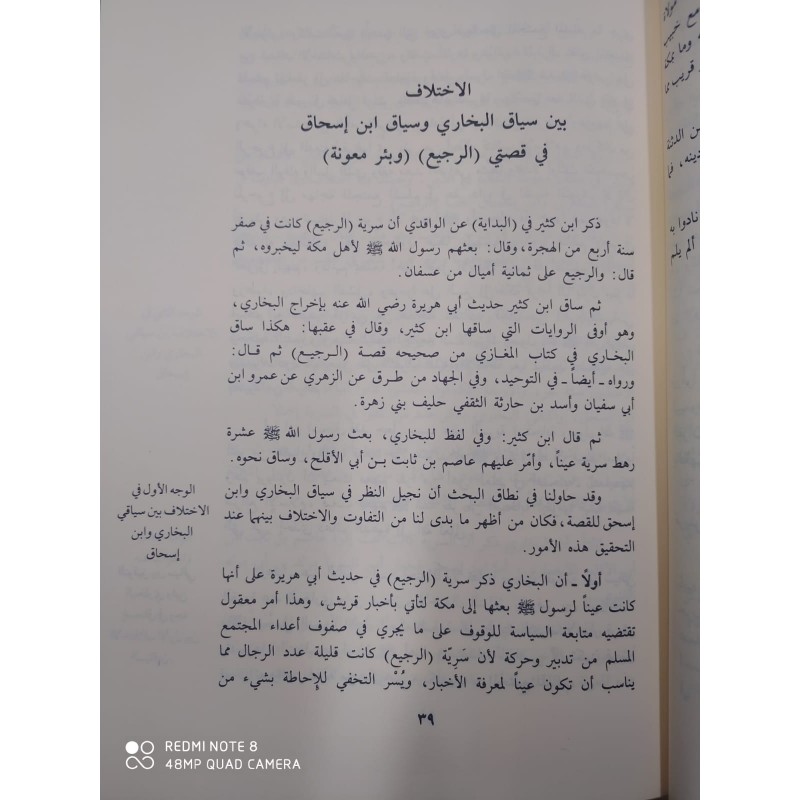 الاختلاف
بين سياق البخاري وسياق ابن إسحاق
في قصتي (الرجيع) (وبئر معونة)
ذكر ابن كثير في (البداية) عن الواقدي أن سرية (الرجيع) كانت في صفر
سنة أربع من الهجرة، وقال: بعثهم رسول الله ﷺ لأهل مكة ليخبروه، ثم
قال: والرجيع على ثمانية أميال من عسفان.
ثم ساق ابن كثير حديث أبي هريرة رضي الله عنه بإخراج البخاري،
وهو أوفى الروايات التي ساقها ابن كثير، وقال في عقبها: هكذا ساق
البخاري في كتاب المغازي من صحيحه قصة (الرجيع) ثم قال:
ورواه ـ أيضاً ـ في التوحيد، وفي الجهاد من طرق عن الزهري عن عمرو ابن
أبي سفيان وأسد بن حارثة الثقفي حليف بني زهرة.
ثم قال ابن كثير: وفي لفظ للبخاري، بعث رسول الله ﷺ عشرة
رهط سرية عيناً، وأمّر عليهم عاصم بن ثابت بن أبي الأقلح، وساق نحوه.
وقد حاولنا في نطاق البحث أن نجيل النظر في سياق البخاري وابن
إسحق للقصة، فكان من أظهر ما بدى لنا من التفاوت والاختلاف بينهما عند
التحقيق هذه الأمور.
الوجه الأول في
الاختلاف بين سياقي
البخاري وابن
إسحاق
أولاً ـ أن البخاري ذكر سرية (الرجيع) في حديث أبي هريرة على أنها
كانت عيناً لرسول ﷺ بعثها إلى مكة لتأتي بأخبار قريش، وهذا أمر معقول
تقتضيه متابعة السياسة للوقوف على ما يجري في صفوف أعداء المجتمع
المسلم من تدبير وحركة لأن سَرِيّة (الرجيع) كانت قليلة عدد الرجال مما
يناسب أن تكون عيناً لمعرفة الأخبار، ويُسْر التخفي للإحاطة بشيء من
٣٩
مع خبيب
وما يمكنه
قريب مما
ن الدثنة
دينه، فما
نادوا به
ألم يلم
REDMI NOTE 8
48MP QUAD CAMERA